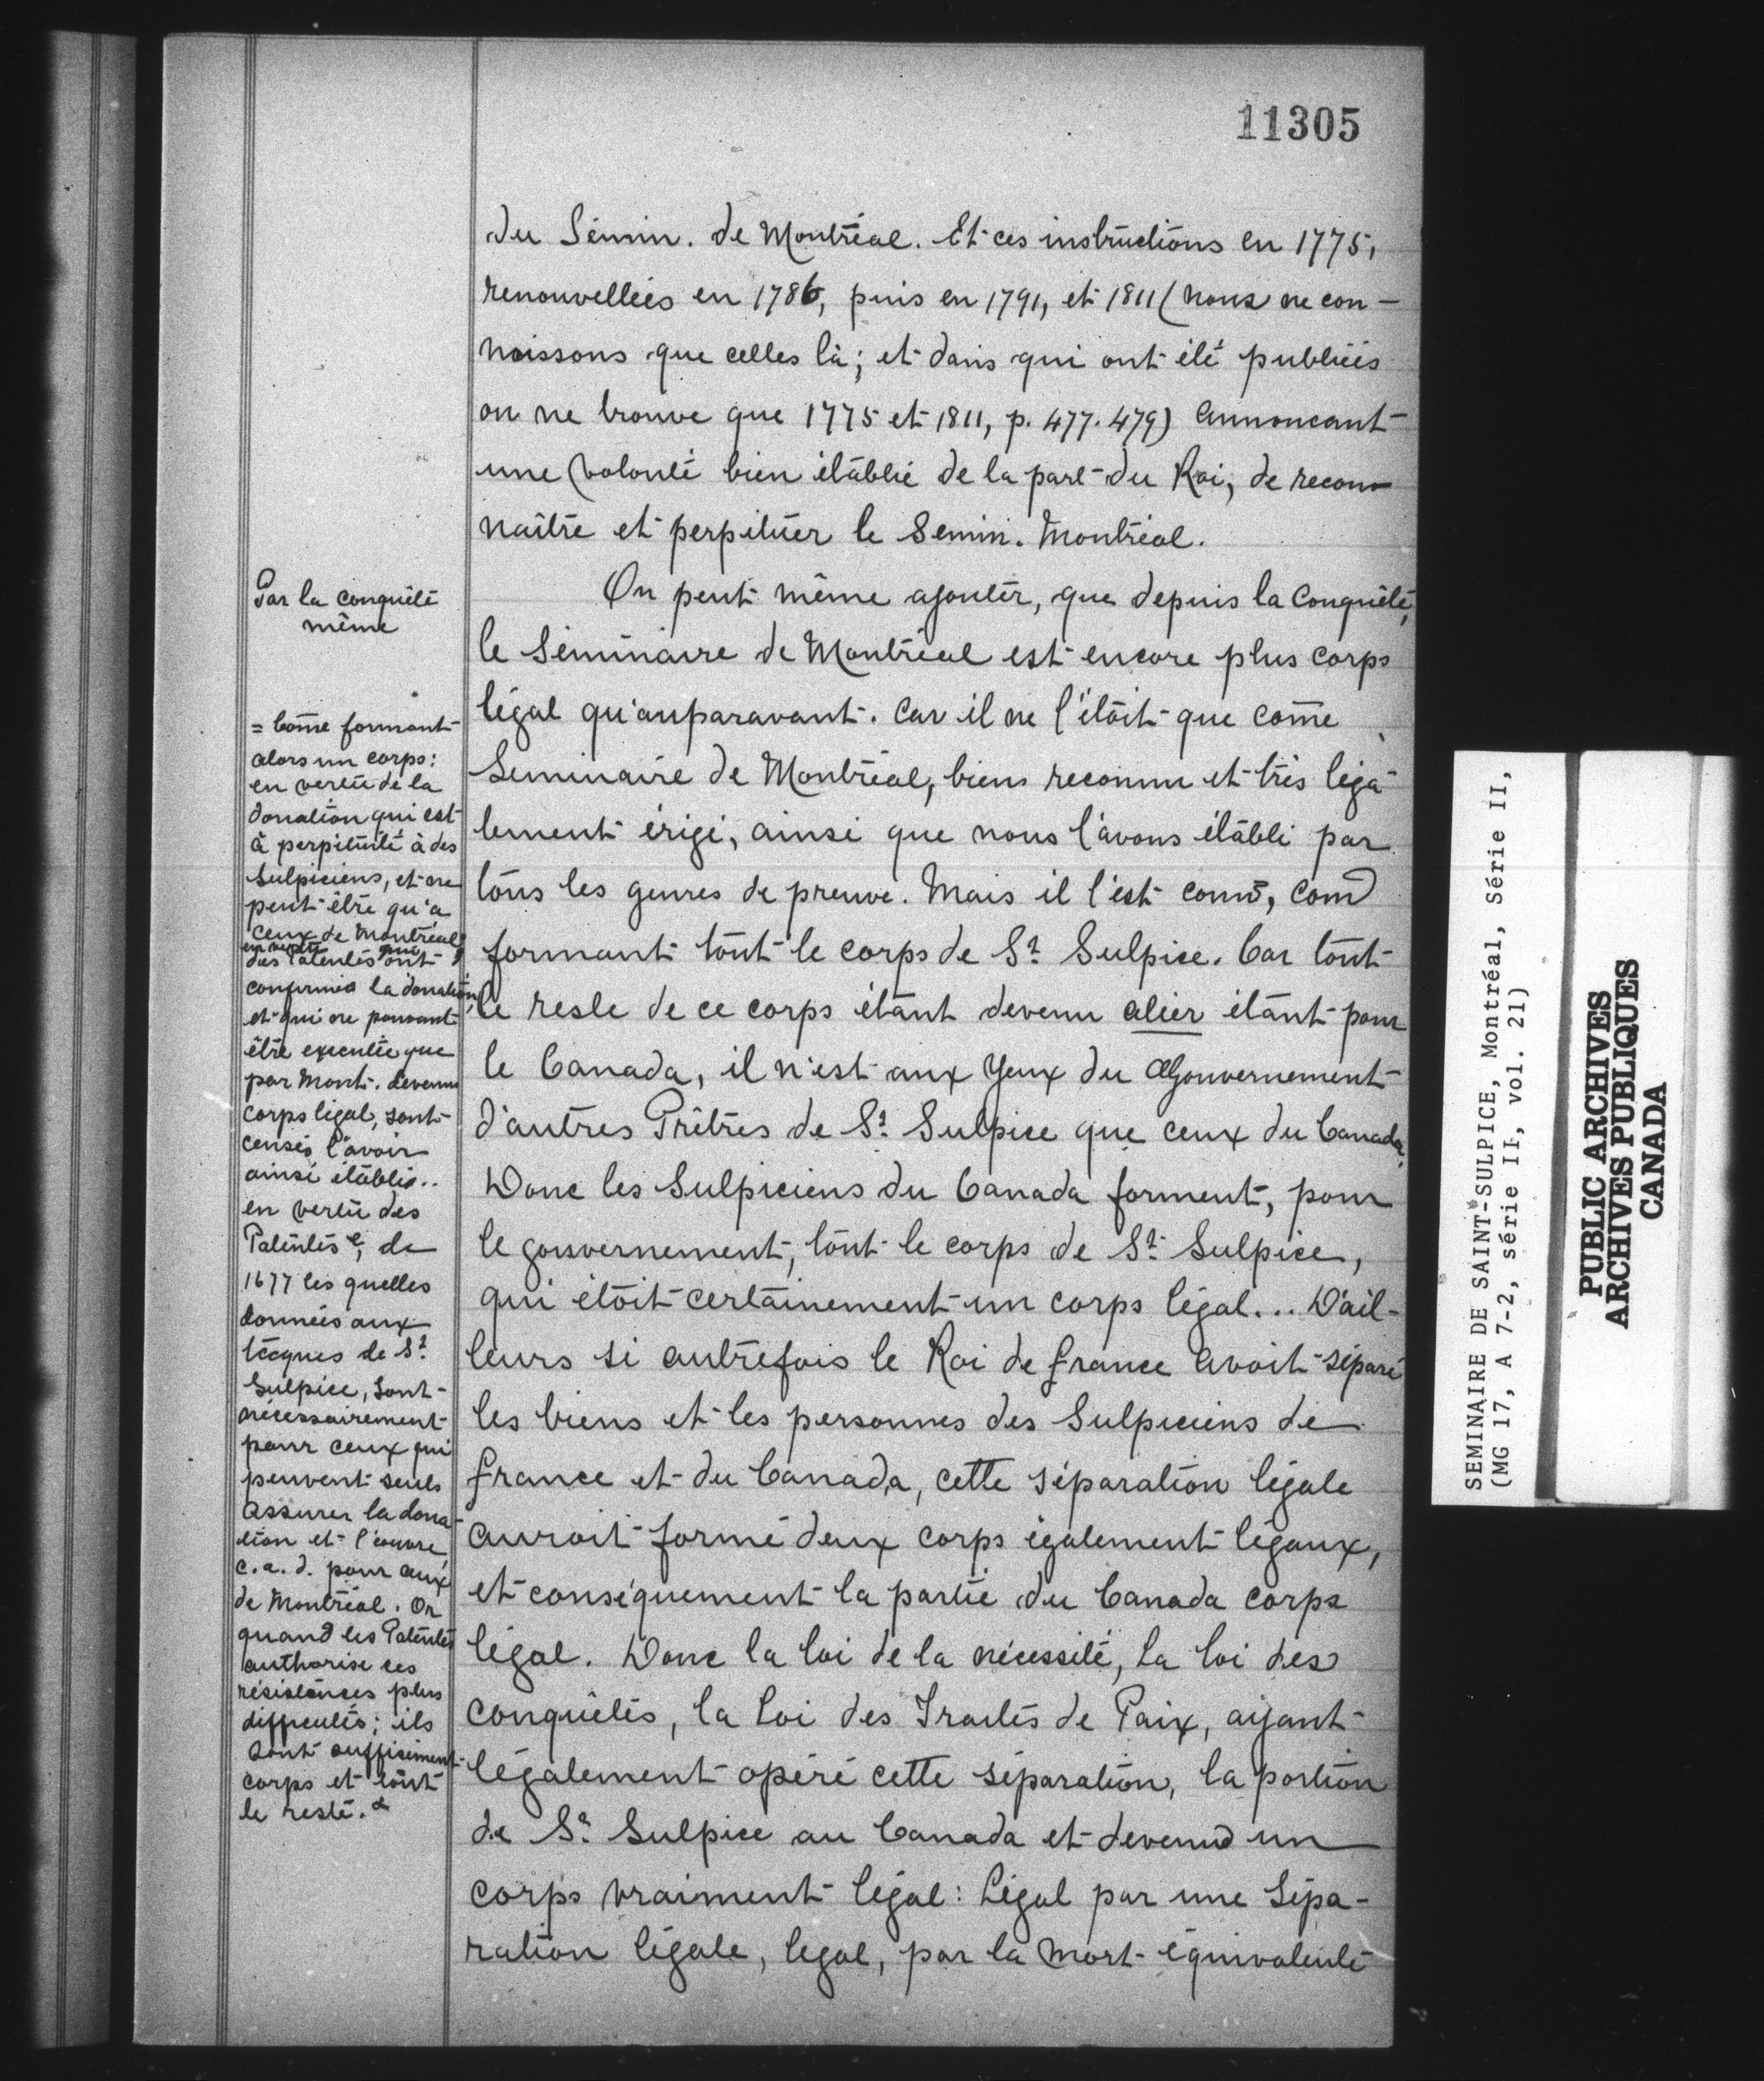 11305
du Sémin. de Montréal. Et ces instructions en 1775,
renouvellées en 1786, puis en 1791, et 1811 (nous ne con-
noissons que celles là; et dans qui ont été publiées
on ne trouve que 1775 et 1811, p. 477. 479) Annoncant
une volonté bien établie de la part du Roi, de recon-
naître et perpétuer le Semin. Montréal.
On peut même ajouter, que depuis la Conquête,
le Séminaire de Montréal est encore plus corps
légal qu'auparavant. Car il ne l'étoit que come
Seminaire de Montréal, biens reconnu et très léga-
lement érigé, ainsi que nous l'avons établi par
tous les genres de preuve. Mais il l'est comē, com
formant tout le corps de St Sulpice. Car tout
le reste de ce corps étant devenu alier étant pour
le Canada, il n'est aux yeux du Gouvernement
d'autres Prêtres de St Sulpice que ceux du Canada.
Donc les Sulpiciens du Canada forment, pour
le gouvernement, tout le corps de St Sulpice,
qui étoit certainement un corps légal... D'ail-
leurs si autrefois le Roi de france avoit séparé
les biens et les personnes des Sulpiciens de
france et du Canada, cette séparation légale
auroit formé deux corps également légaux,
et conséquement la partie du Canada corps
légal. Donc la loi de la nécessité, La loi des
conquêtes, la Loi des Traités de Paix, aijant
légalement opéré cette séparation, la portion
de St Sulpice au Canada et devenud un
corps vraiment légal: Légal par une sépa-
ration légale, legal, par la mort équivalente
Par la conquête
même
= come formant
alors un corps:
en vertu de la
donation qui est
à perpétuité à des
Sulpiciens, et ne
peut être qu'à
ceux de Montréal
en vertu
des Patentes qui ont
confirmés la donation,
et qui ne pouvant
être executée que
par Mont. devenu
corps légal, sont
censés l'avoir
ainsi établis..
en vertu des
Patentes, de
1677 les quelles
données aux
de St
Sulpice, sont
nécessairement
pour ceux qui
peuvent seuls
assurer la dona-
tion et l'œuvre
c.a.d. pour ceux
de Montréal. Or
quand les Patentes
authorise ces
résistances plus
difficultés; ils
sont suffisiment
corps et tout
le reste.
SEMINAIRE DE SAINT-SULPICE, Montréal, Série II,
(MG 17, A 7-2, série II, vol. 21)
PUBLIC ARCHIVES
ARCHIVES PUBLIQUES
CANADA